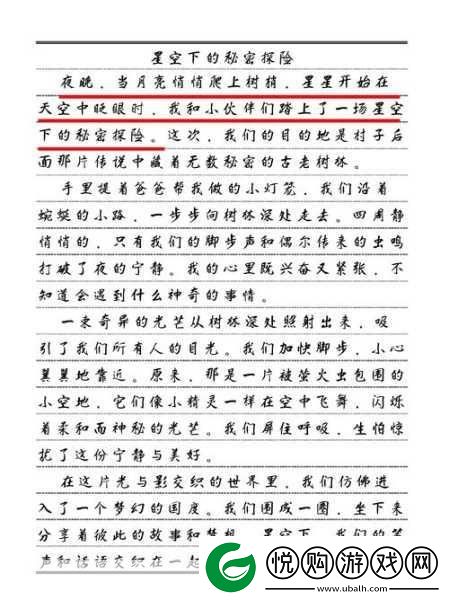 星空下的秘密探险
夜晚，当月亮悄悄爬上树梢，星星开始在
天空中眨眼时，我和小伙伴们踏上了一场星空
下的秘密探险。这次，我们的目的地是村子后
面那片传说中藏着无数秘密的古老树林。
手里提着爸爸帮我做的小灯笼，我们沿着
蜿蜒的小路，一步步向树林深处走去。四周静
悄悄的，只有我们的脚步声和偶尔传来的虫鸣
打破了夜的宁静。我的心里既兴奋又紧张，不
知道会遇到什么神奇的事情。
一束奇异的光芒从树林深处照射出来，吸
引了我们所有人的目光。我们加快脚步，小心
翼翼地靠近。原来，那是一片被萤火虫包围的
小空地，它们像小精灵一样在空中飞舞，闪烁
着柔和而神秘的光芒。我们屏住呼吸，生怕惊
扰了这份宁静与美好。
在这片光与影交织的世界里，我们仿佛进
入了一个梦幻的国度。我们围成一圈，坐下来
分享着彼此的故事和梦想。星空下，我们的笑
声和话语交织在一起
悦购游戏网
www.ubalh.com